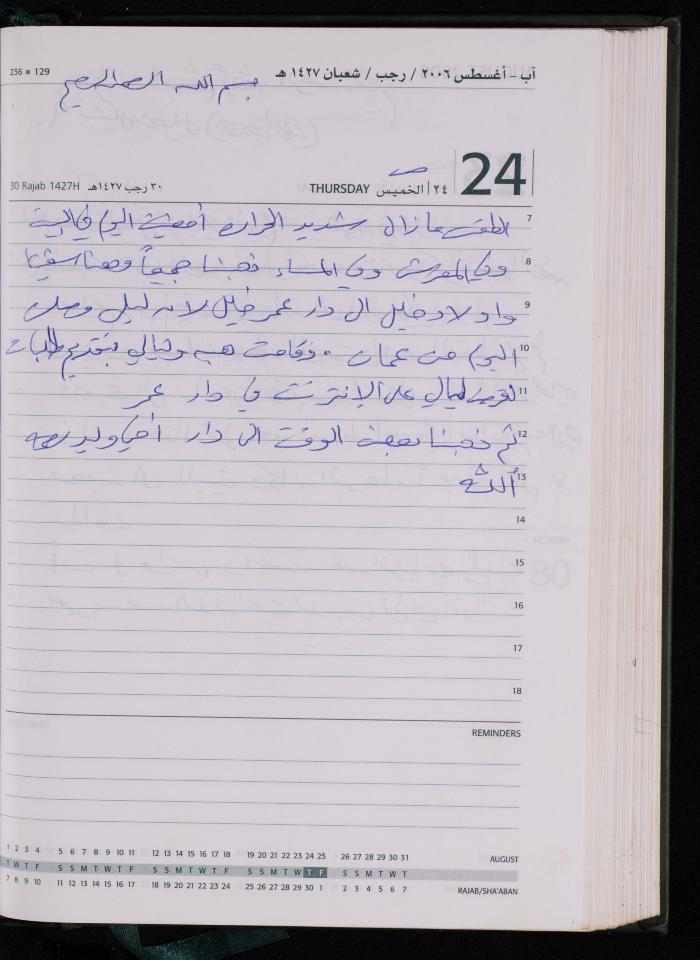 236 ■ 129
آب - أغسطس ٢٠٠٦ / رجب / شعبان ١٤٢٧ هـ
بسم الله الرحمن الرحيم
30 Rajab 1427H ٣٠ رجب ١٤٢٧هـ THURSDAY ٢٤ الخميس 24
7 الطقس ما زال شديد الحرارة أمضيت اليوم في البيت
8 وفي المساء ذهبنا جميعاً
9 واولاد خليل الى دار عمر خليل لان ليلى وصلت
10 اليوم من عمان . وقامت هبه وليالي بتقديم طلبات
11 ليالي على الإنترنت في دار عمر
12 ثم ذهبنا بعض الوقت الى دار أخي وليد رحمه
13 الله
14
15
16
17
18
REMINDERS
1 2 3 4 5 6 7 8 9 10 11 12 13 14 15 16 17 18 19 20 21 22 23 24 25 26 27 28 29 30 31 AUGUST
T W T F S S M T W T F S S M T W T F S S M T W T F S S M T W T
7 8 9 10 11 12 13 14 15 16 17 18 19 20 21 22 23 24 25 26 27 28 29 30 1 2 3 4 5 6 7 RAJAB/SHA'ABAN